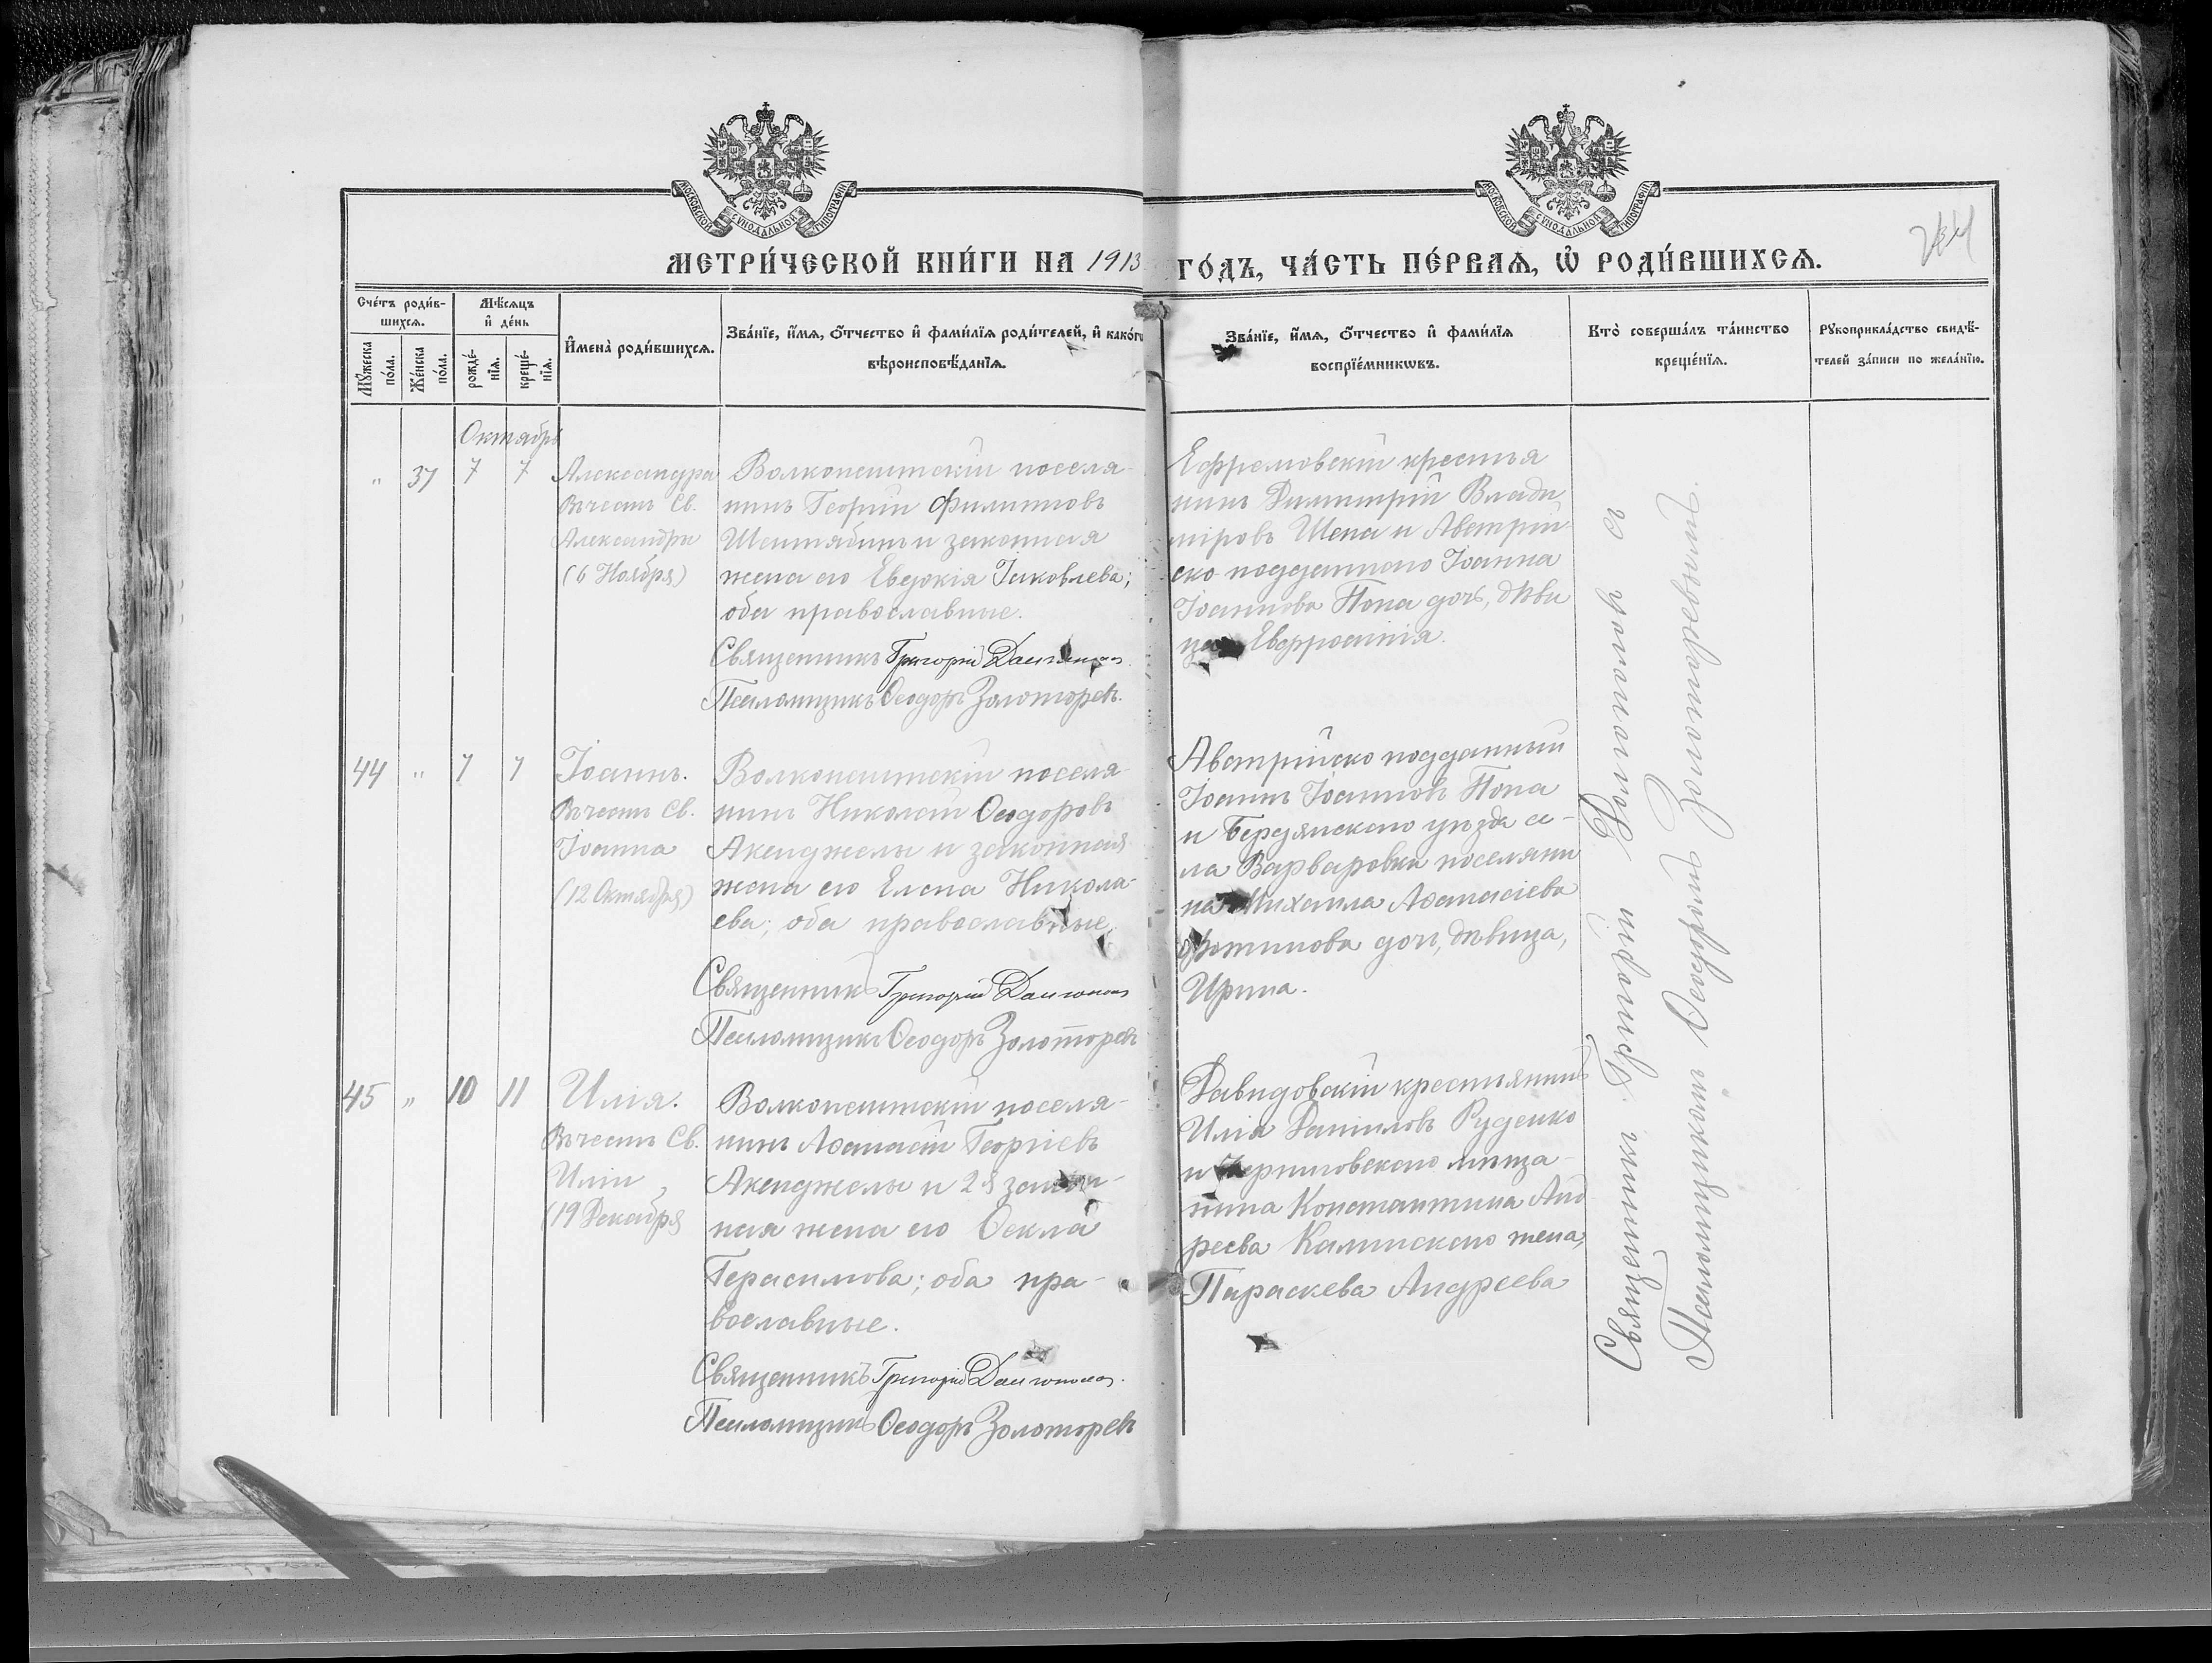 МОСКОВСКОЙ СѴНОДАЛЬНОЙ ТИПОГРАФІИ
МОСКОВСКОЙ СѴНОДАЛЬНОЙ ТИПОГРАФІИ
МЕТРИ́ЧЕСКОЙ КНИ́ГИ НА 1913
ГО́ДЪ, ЧА́СТЬ ПЕ́РВАѦ, Ѽ РОДИ́ВШИХСѦ.
Сче́тъ роди́в-
шихсѧ.
Мꙋ́жеска
по́ла.
Же́нска
по́ла.
Мѣ́сѧцъ
и҆ де́нь
рожде́-
нїѧ.
креще́-
нїѧ.
И҆мена̀ роди́вшихсѧ.
Зва́нїе, и҆́мѧ, ѻ҆́тчество и҆ фами́лїѧ роди́телей, и҆ како́гѡ
вѣроисповѣ́данїѧ.
Зва́нїе, и҆́мѧ, ѻ҆́тчество и҆ фами́лїѧ
воспрїе́мникѡвъ.
Кто̀ соверша́лъ та́инство
креще́нїѧ.
Рꙋкоприкла́дство свидѣ́-
телей за́писи по жела́нїю.
Октябрь
" 37 7 7
Александра
Въ честь Св.
Александры
(6 Ноября)
Волконештскій поселя-
нинъ Георгій Филипповъ
и законная
жена его Евдокія Іаковлева;
оба православные.
Священникъ Григорій
Псаломщикъ Ѳеодоръ Золоторевъ.
Ефремовскій крестья
нинъ Димитрій Влади
міровъ Щепа и Австрій
ско подданнаго Іоанна
Іоаннова Попа дочь, дѣви
ца Евфросинія.
44 " 7 7
Іоаннъ.
Въ честь Св.
Іоанна
(12 Октября)
Волконештскій поселя-
нинъ Николай Ѳеодоровъ
Акенджелы и законная
жена его Елена Никола-
ева; оба православные.
Священникъ Григорій
Псаломщикъ Ѳеодоръ Золоторевъ
Австрійско подданный
Іоаннъ Іоанновъ Попа
и Бердянскаго уѣзда се-
ла Варваровки поселяни
на Михаила Аѳанасіева
дочь, дѣвица,
Ирина.
45 " 10 11
Илія.
Въ честь Св.
Иліи
(19 Декабря
Волконештскій поселя-
нинъ Аѳанасій Георгіевъ
Акенджелы и 2я закон-
ная жена его Ѳекла
Герасимова; оба пра-
вославные.
Священникъ Григорій
Псаломщикъ Ѳеодоръ Золоторевъ
Давидовскій крестьянинъ
Илія Даніиловъ Руденко
и Черниговскаго мѣща-
нина Константина Анд
реева Калинскаго жена,
Параскева Андреева
Священникъ Григорій с
Псаломщикомъ Ѳеодоромъ Золотаревымъ.